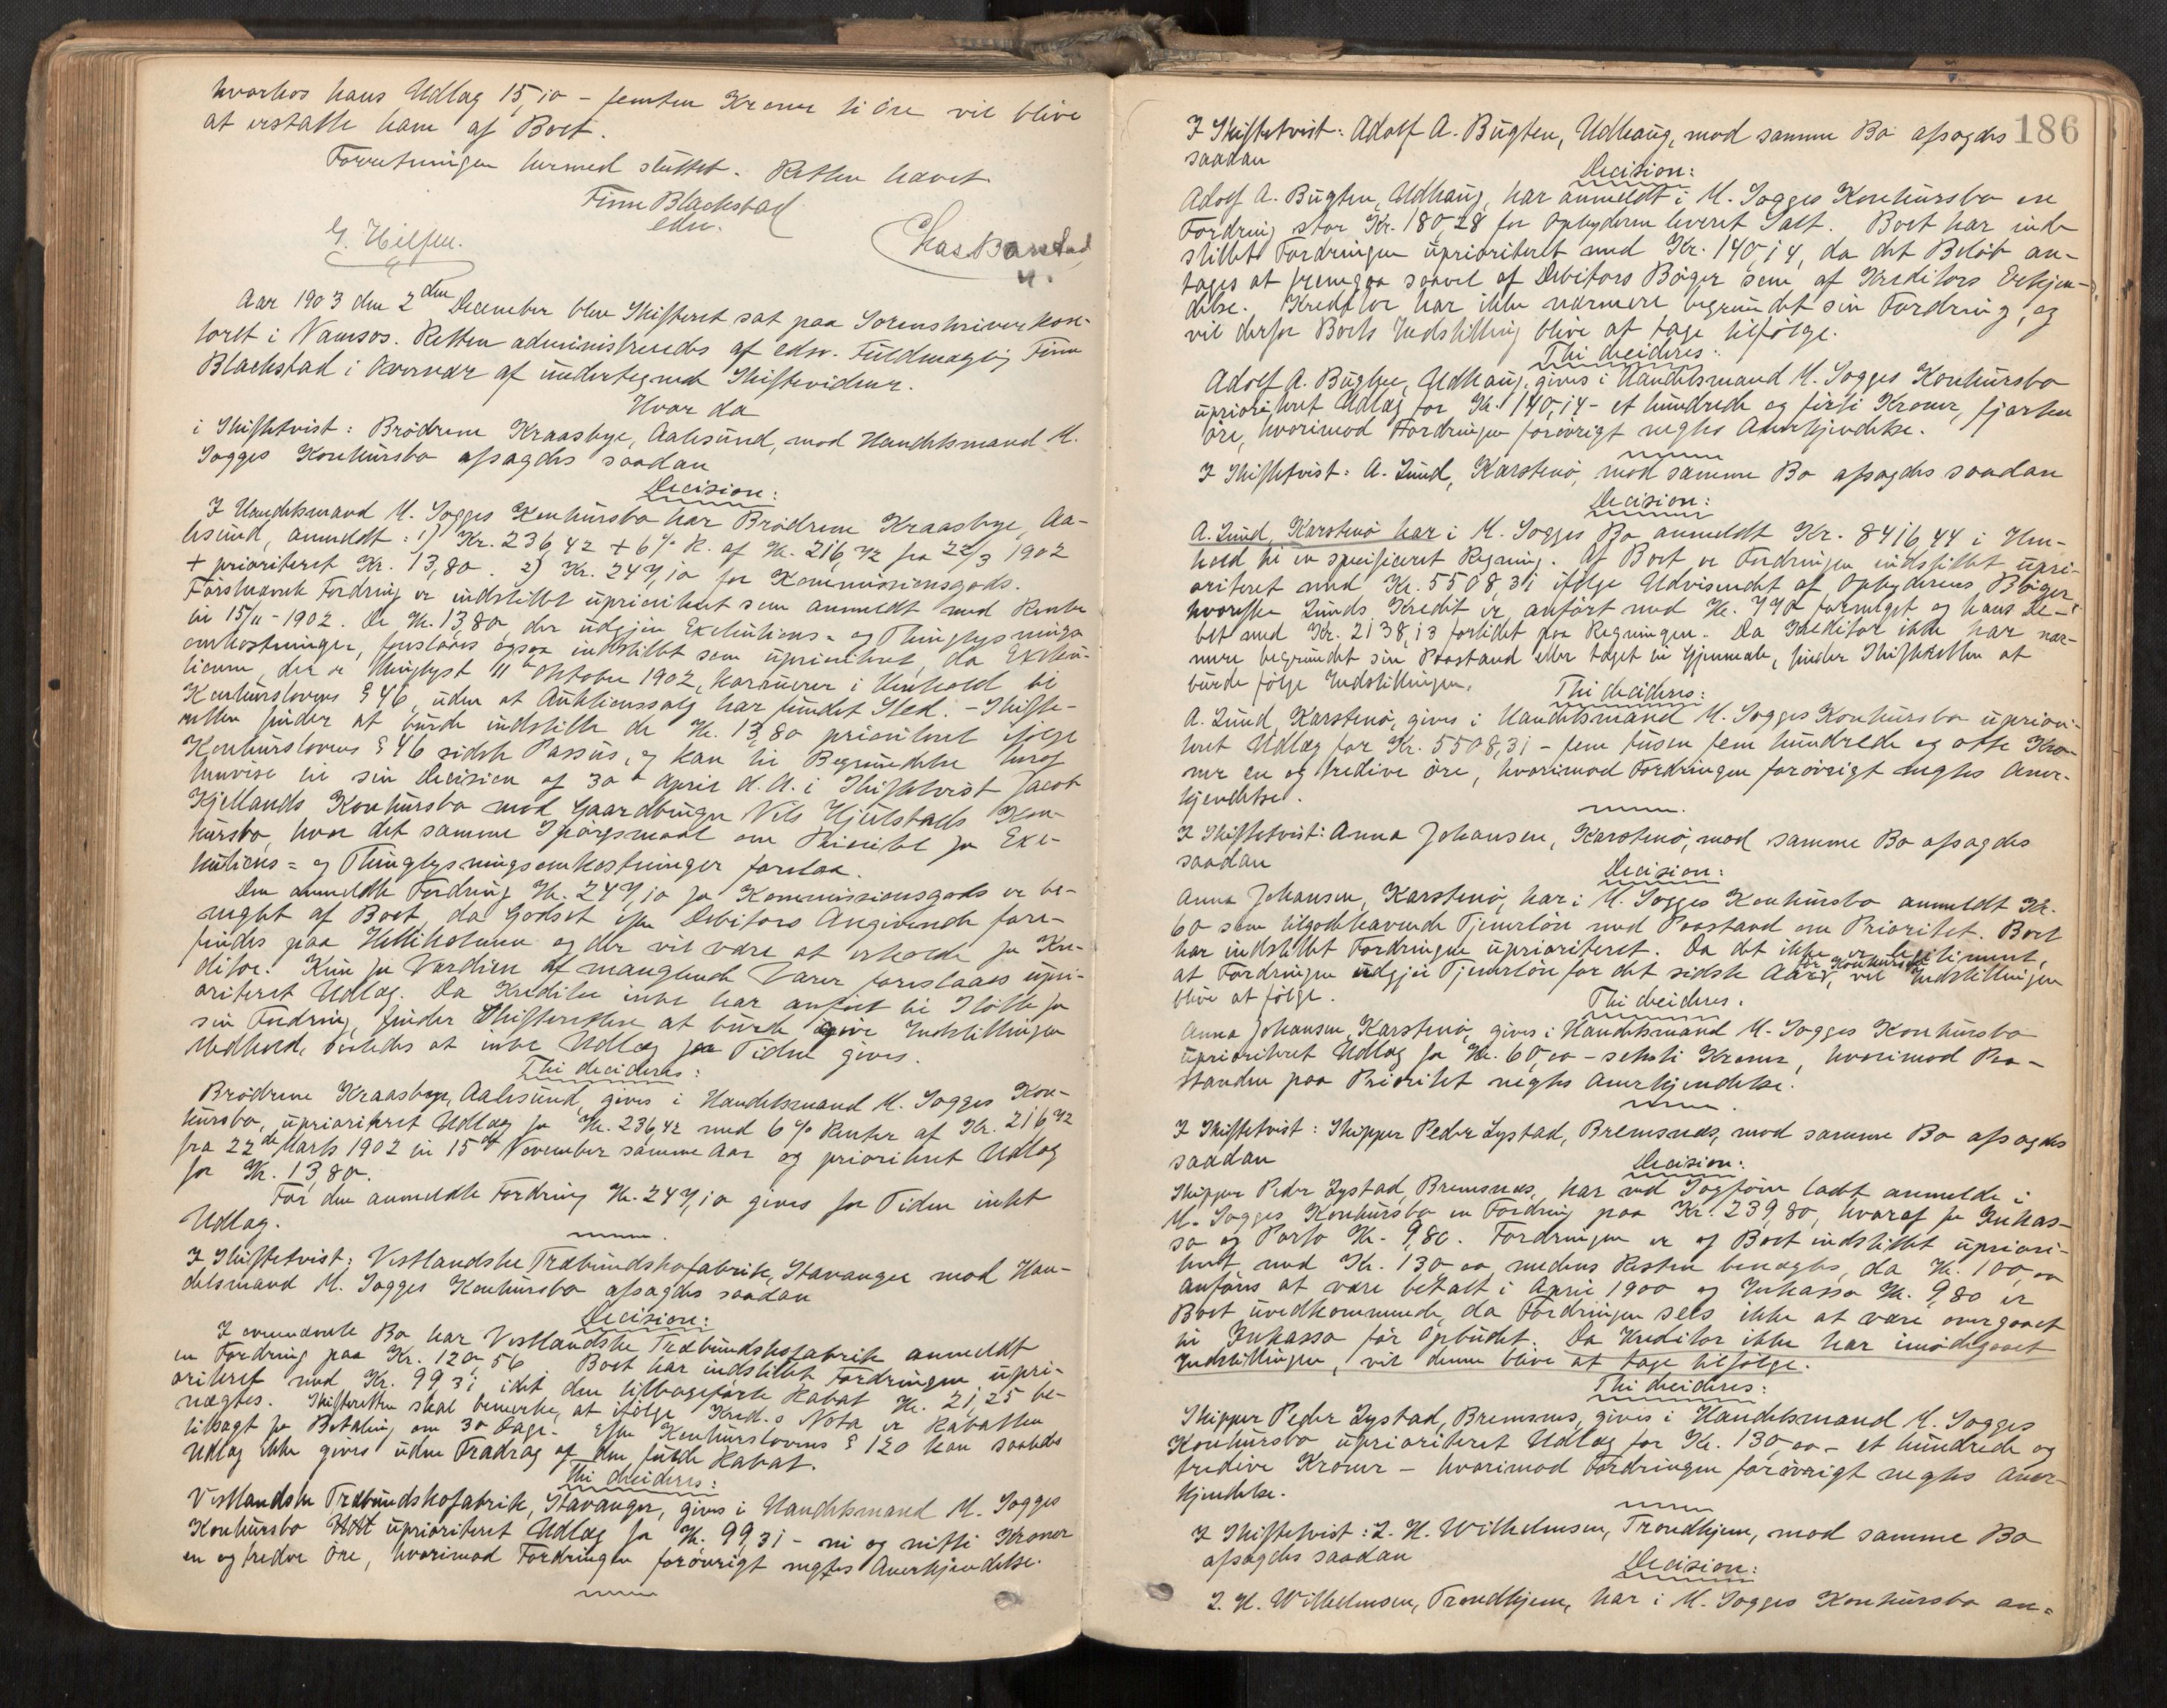 hvorhos hans Udlæg 15,10 - femten Kroner ti Øre vil blive
at erstatte ham af Boet.
Forretningen hermed sluttet. Retten hævet.
Finn Blackstad
edsv.
G. Hilsen.
Chas Barstad
Aar 1903 den 2den December blev Skifteret sat paa Sorenskriverkon-
toret i Namsos. Retten administreredes af edsv. Fuldmægtig Finn
Blackstad i Overvær af undertegnede Skiftevidner.
Hvor da
i Skiftetvist: Brødrene Kraasbye, Aalesund, mod Handelsmand M.
Sogges Konkursbo afsagdes saadan
Decision:
I Handelsmand M. Sogges Konkursbo har Brødrene Kraasbye, Aa-
lesund, anmeldt: 1) Kr. 236,42 + 6% R. af Kr. 216,42 fra 22/3 1902
+ prioriteret Kr. 13,80. 2) Kr. 247,10 for Kommissionsgods.
Førstnævnte Fordring er indstillet uprioriteret som anmeldt med Rente
til 15/11-1902. De Kr. 13,80, der udgjør Exekutions- og Thinglysnings-
omkostninger, foreslaaes ogsaa indstillet som uprioriteret, da Exeku-
tionen, der er thinglyst 11te Oktober 1902, karduerer i Henhold til
Konkurslovens § 46, uden at Auktionssalg har fundet Sted. - Skifte-
retten finder at burde indstille de Kr. 13,80 prioriteret ifølge
Konkurslovens § 46 sidste Passus, og kan til Begrundelse heraf
henvise til sin Decision af 30te April d. A. i Skiftetvist Jacob
Kjellands Konkursbo mod Gaardbruger Nils Hjulstads Kon-
kursbo, hvor det samme Spørgsmaal om Prioritet for Exe-
kutions- og Thinglysningsomkostninger forelaa.
Den anmeldte Fordring Kr. 247,10 for Kommissionsgods er be-
nægtet af Boet, da Godset efter Debitors Angivende fore-
findes paa og der vil være at erholde for Kre-
ditor. Kun for Værdien af manglende Varer foreslaaes upri-
oriteret Udlæg. Da Kreditor intet har anført til Støtte for
sin Fordring, finder Skifteretten at burde give Indstillingen
Medhold, saaledes at intet Udlæg for Tiden gives.
Thi decideres:
Brødrene Kraasbye, Aalesund, gives i Handelsmand M. Sogges Kon-
kursbo, uprioriteret Udlæg for Kr. 236,42 med 6% Renter af Kr. 216,42
fra 22de Marts 1902 til 15de November samme Aar og prioriteret Udlæg
for Kr. 13,80.
For den anmeldte Fordring Kr. 247,10 gives for Tiden intet
Udlæg.
I Skiftetvist: Vestlandske Træbundskofabrik, Stavanger mod Han-
delsmand M. Sogges Konkursbo afsagdes saadan
Decision:
I ovennævnte Bo har Vestlandske Træbundskofabrik anmeldt
en Fordring paa Kr. 120,56. Boet har indstillet Fordringen upri-
oriteret med Kr. 99,31 idet den tilbageførte Rabat Kr. 21,25 be-
nægtes. Skifteretten skal bemerke, at ifølge Kred.s Nota er Rabatten
tilsagt for Betaling om 30 Dage. Efter Konkurslovens § 120 kan saaledes
Udlæg ikke gives uden Fradrag af den fulde Rabat.
Thi decideres:
Vestlandske Træbundskofabrik, Stavanger, gives i Handelsmand M. Sogges
Konkursbo uprioriteret Udlæg for Kr. 99,31 - ni og nitti Kroner
en og tredve Øre, hvorimod Fordringen forøvrigt negtes Anerkjendelse.
186
I Skiftetvist: Adolf A. Bugten, Udhaug, mod samme Bo afsagdes
saadan
Decision:
Adolf A. Bugten, Udhaug, har anmeldt i M. Sogges Konkursbo en
Fordring stor Kr. 180,28 for Opbyderen leveret Salt. Boet har ind-
stillet Fordringen uprioriteret med Kr. 140,14, da det Beløb an-
tages at fremgaa saavel af Debitors Bøger som af Kreditors Erkjen-
delse. Kreditor har ikke nærmere begrundet sin Fordring, og
vil derfor Boets Indstilling blive at tage tilfølge.
Thi decideres:
Adolf A. Bugten, Udhaug, gives i Handelsmand M. Sogges Konkursbo
uprioriteret Udlæg for Kr. 140,14 - et hundrede og firti Kroner, fjorten
Øre, hvorimod Fordringen forøvrigt negtes Anerkjendelse.
I Skiftetvist: A. Lund, Karstenø, mod samme Bo afsagdes saadan
Decision:
A. Lund, Karstenø har i M. Sogges Bo anmeldt Kr. 8416,44 i Hen-
hold til en specificeret Regning. Af Boet er Fordringen indstillet upri-
oriteret med Kr. 5508,31 ifølge Udvisendet af Opbyderens Bøger,
hvorefter Lunds Kredit er anført med Kr. 770 formeget og hans De-
bet med Kr. 2138,13 forlidet paa Regningen. Da Kreditor ikke har nær-
mere begrundet sin Paastand eller taget til Gjenmæle, finder Skifteretten at
burde følge Indstillingen.
Thi decideres:
A. Lund, Karstenø, gives i Handelsmand M. Sogges Konkursbo upriori-
teret Udlæg for Kr. 5508,31 - fem tusen fem hundrede og otte Kro-
ner en og tredive Øre, hvorimod Fordringen forøvrigt negtes Aner-
kjendelse.
I Skiftetvist: Anna Johansen, Karstenø, mod samme Bo afsagdes
saadan
Decision:
Anna Johansen, Karstenø, har i M. Sogges Konkursbo anmeldt Kr.
60 som tilgodehavende Tjenerløn med Paastand om Prioritet. Boet
har indstillet Fordringen uprioriteret. Da det ikke er legitimeret,
at Fordringen udgjør Tjenerløn for det sidste Aar før Konkursen, vil Indstillingen
blive at følge.
Thi decideres.
Anna Johansen, Karstenø, gives i Handelsmand M. Sogges Konkursbo
uprioriteret Udlæg for Kr. 60,00 - seksti Kroner, hvorimod Paa-
standen paa Prioritet negtes Anerkjendelse.
I Skiftetvist: Skipper Peder Lystad, Bremsnes, mod samme Bo afsagdes
saadan
Decision:
Skipper Peder Lystad, Bremsnes, har ved Sagfører ladt anmelde i
M. Sogges Konkursbo en Fordring paa Kr. 239,80, hvoraf for Inkas-
so og Porto Kr. 9,80. Fordringen er af Boet indstillet upriori-
teret med Kr. 130,00, medens Resten benægtes, da Kr. 100,00
anføres at være betalt i April 1900 og Inkasso Kr. 9,80 er
Boet uvedkommende, da Fordringen sees ikke at være overgaaet
til Inkasso før Opbudet. Da Kreditor ikke har imødegaaet
Indstillingen, vil denne blive at tage tilfølge.
Thi decideres:
Skipper Peder Lystad, Bremsnes, gives i Handelsmand M. Sogges
Konkursbo uprioriteret Udlæg for Kr. 130,00 - et hundrede og
tredive Kroner - hvorimod Fordringen forøvrigt negtes Aner-
kjendelse.
I Skiftetvist: L. H. Wilhelmsen, Trondhjem, mod samme Bo
afsagdes saadan
Decision:
L. H. Wilhelmsen, Trondhjem, har i M. Sogges Konkursbo an-